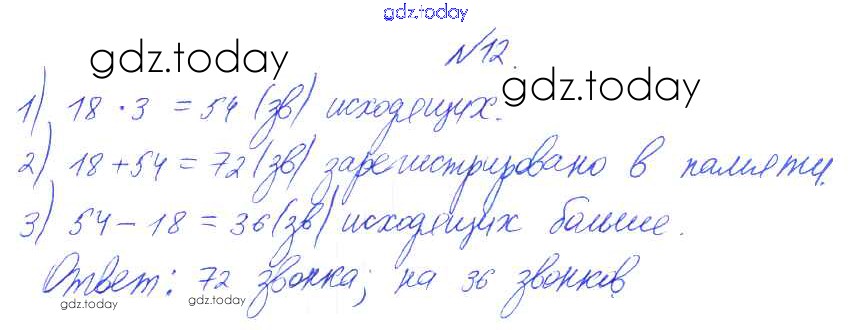 gdz.today
№12.
gdz.today
1) 18 · 3 = 54 (зв) исходящих.
gdz.today
2) 18 + 54 = 72 (зв) зарегистрировано в памяти.
3) 54 – 18 = 36 (зв) исходящих больше.
Ответ: 72 звонка; на 36 звонков
gdz.today
gdz.today